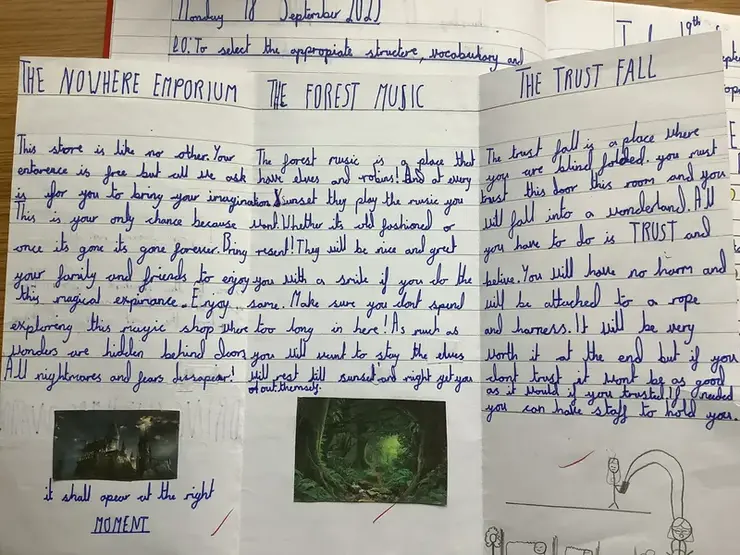 Monday 18 September 202
LO: To select the appropiate structure, vocabulary and
19th
THE NOWHERE EMPORIUM
This store is like no other. Your
enterence is free but all we ask
is for you to bring your imagination
This is your only chance because
once its gone its gone forever. Bring
your family and friends to enjoy
this magical expiriance. Enjoy
exploring this magic shop where
wonders are hidden behind doors
All nightmares and fears dissapear!
it shall apear at the right
MOMENT
THE FOREST MUSIC
The forest music is a place that
have elves and robins! And at every
sunset they play the music you
want. Whether its old fashioned or
resent! They will be nice and greet
you with a smile if you do the
same. Make sure you dont spend
too long in here! As much as
you will want to stay the elves
will rest till sunset and might get you
out themself.
THE TRUST FALL
The trust fall is a place where
you are blind folded. you must
trust this door this room and you
will fall into a wonderland. All
you have to do is TRUST and
belive. You will have no harm and
will be attached to a rope
and harness. It will be very
worth it at the end but if you
dont trust it wont be as good
as it would if you trusted. If needed
you can have staff to hold you.